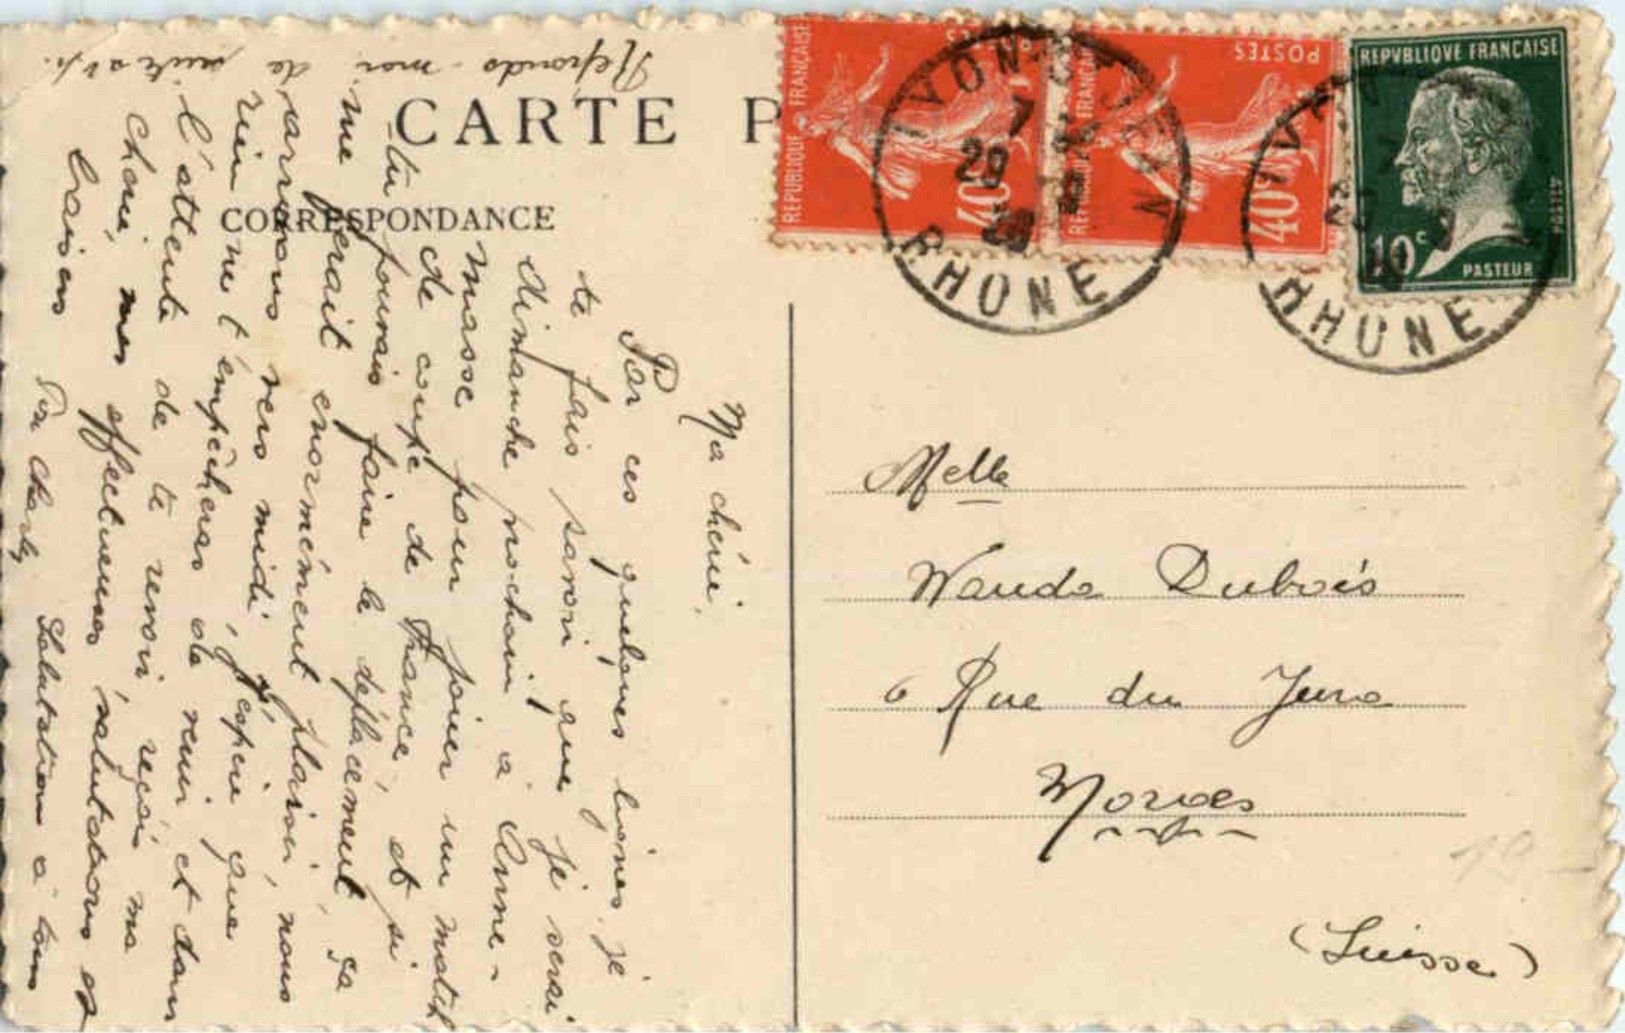 CARTE P
CORRESPONDANCE
Ma chérie,
Par ces quelques lignes, je
te fais savoir que je serai
dimanche prochain à Anne-
masse pour jouer un match
de coupe de France, et si
tu pourrais faire le déplacement, ça
me ferait énormément plaisir, nous
arrivons vers midi, j'espère que
rien ne t'empêchera de venir et dans
l'attente de te revoir reçoi ma
chérie, mes affectueuses salutations et
baisers
Ton Charly
Salutations à tous
Réponds-moi de suite s.v.p.
REPUBLIQUE FRANÇAISE
POSTES
40c
REPUBLIQUE FRANÇAISE
POSTES
40c
REPVBLIQVE FRANÇAISE
POSTES
10c
PASTEUR
LYON-
RHONE
RHONE
Melle
Wanda Dubois
6 Rue du Jura
Morges
(Suisse)